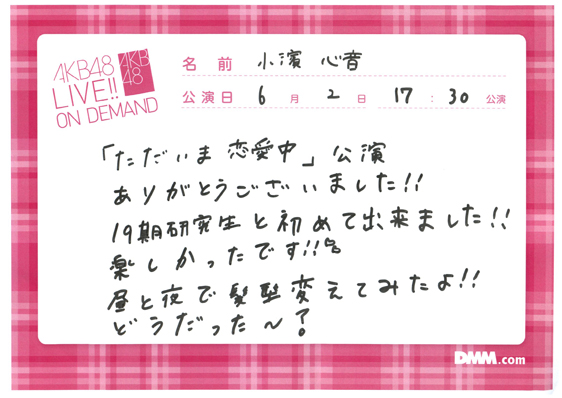 AKB48
LIVE!!
ON DEMAND
AKB
48
名 前 小濱 心音
公演日 6 月 2 日 17 : 30 公演
「ただいま 恋愛中」公演
ありがとうございました!!
19期研究生と初めて出来ました!!
楽しかったです!!
昼と夜で髪型変えてみたよ!!
どうだった〜?
DMM.com